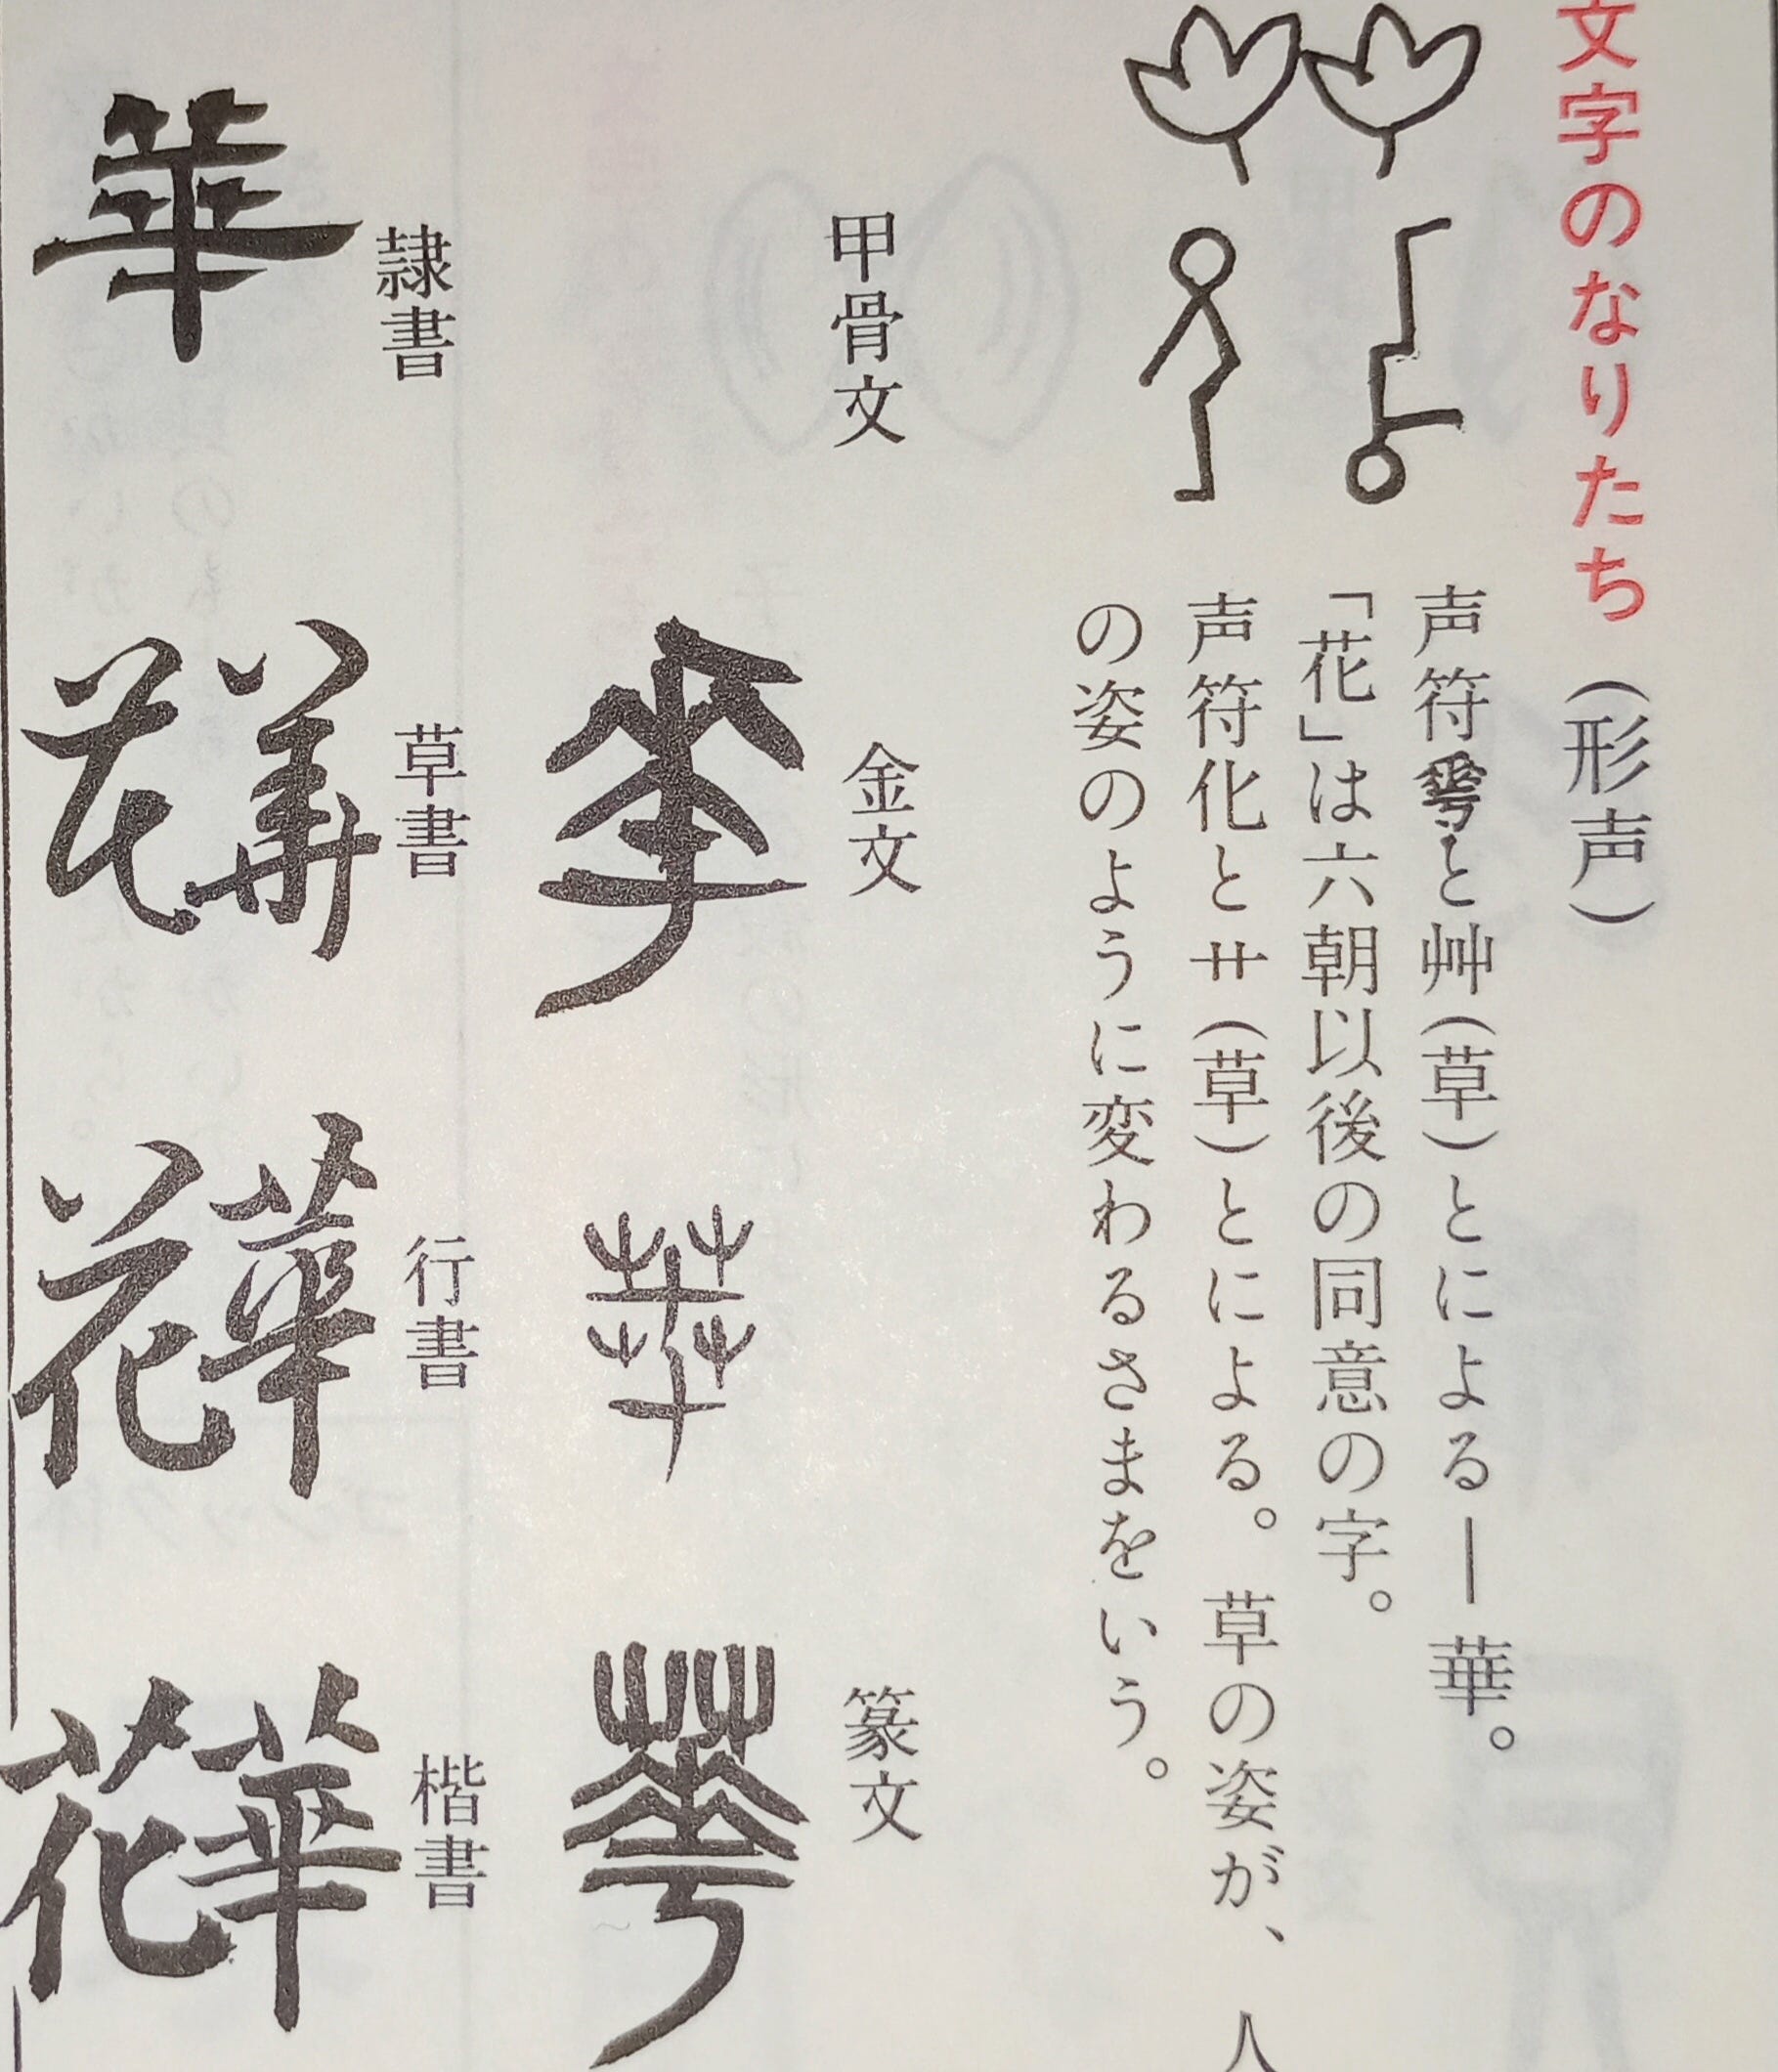 文字のなりたち（形声）
声符𠌶と艸（草）とによる—華。
「花」は六朝以後の同意の字。
声符化と艹（草）とによる。草の姿が、人
の姿のように変わるさまをいう。
甲骨文
金文
篆文
華
華
華
隷書
草書
行書
楷書
華
華
花
華
花
華
花